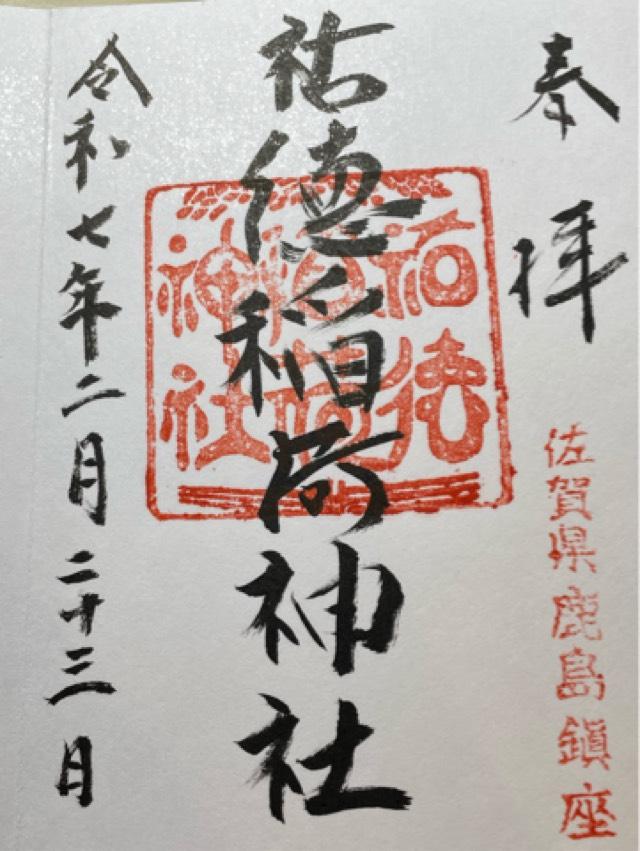 奉拝
佐賀県鹿島鎮座
祐徳稲荷神社
祐徳
稲荷
神社
令和七年二月二十三日